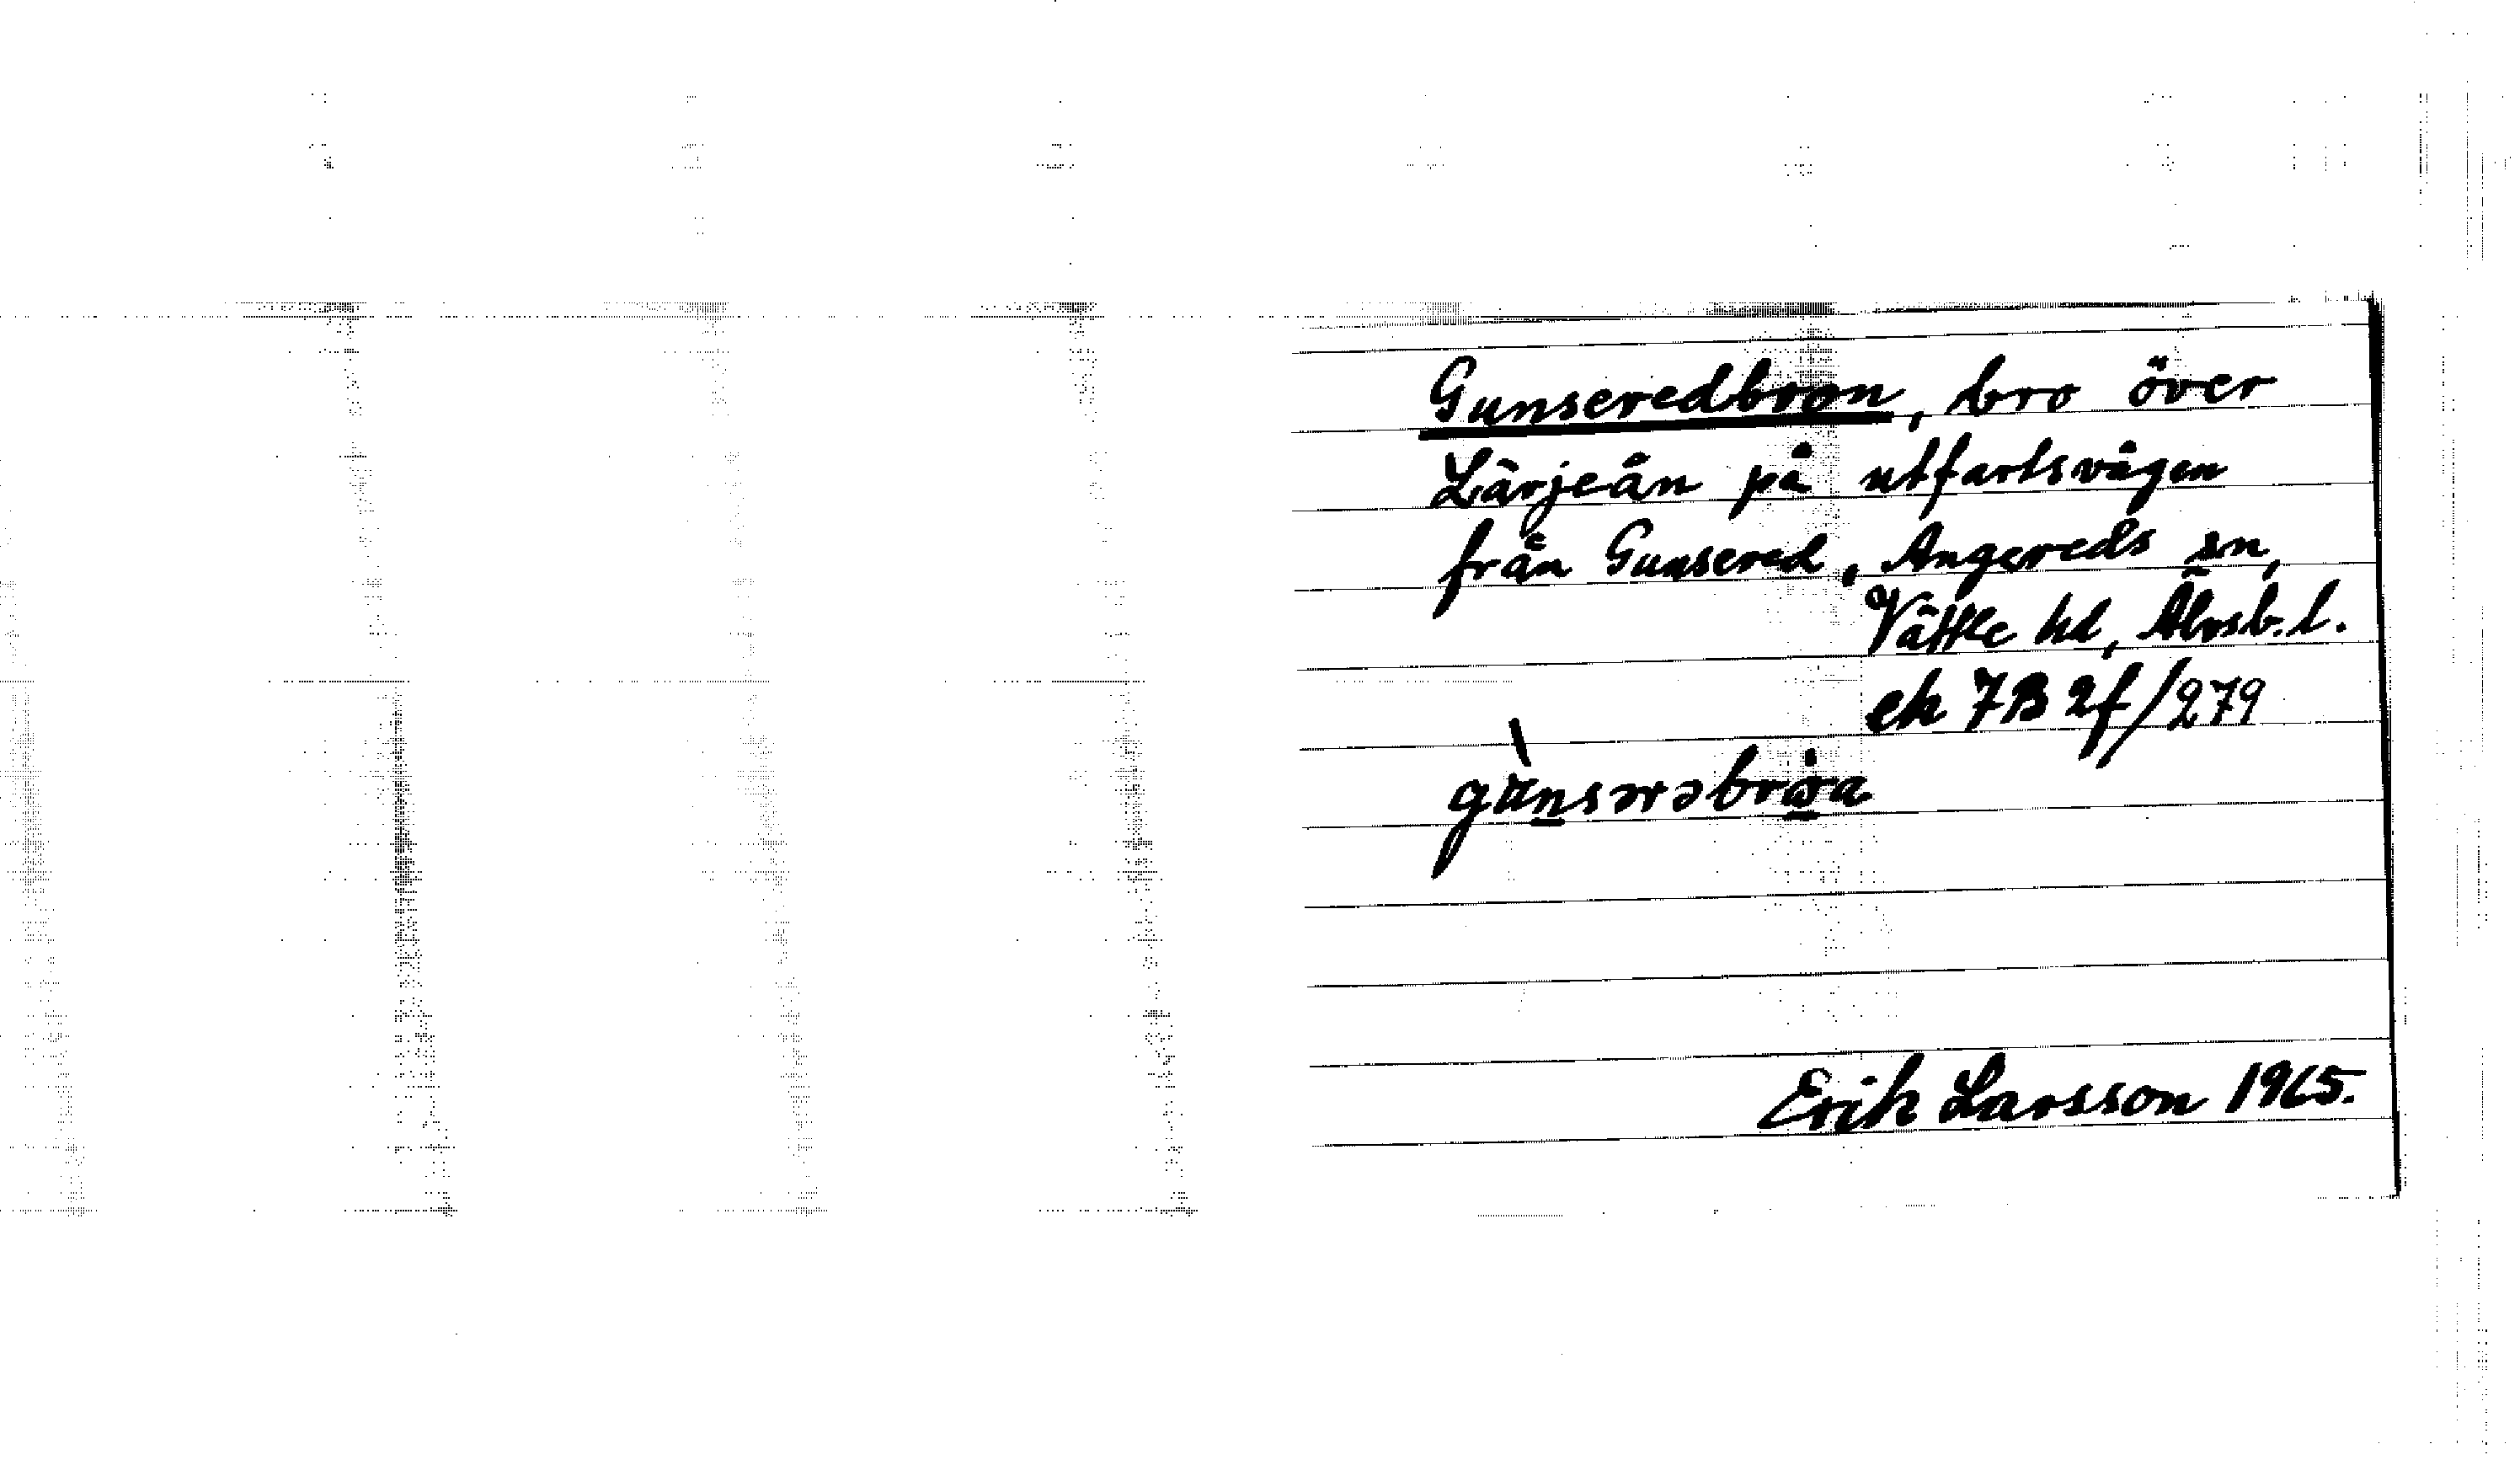 Gunseredbron, bro över
Lärjeån på utfartsvägen
från Gunsered, Angereds sn,
Vättle hd, Älvsb. l.
ek 7B 2f/279
gu̇nsərəbrɷa
Erik Larsson 1965.